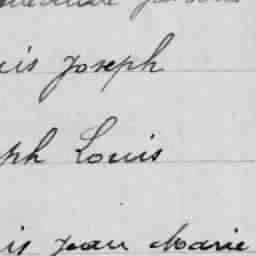 uis joseph
ph Louis
is jean Marie